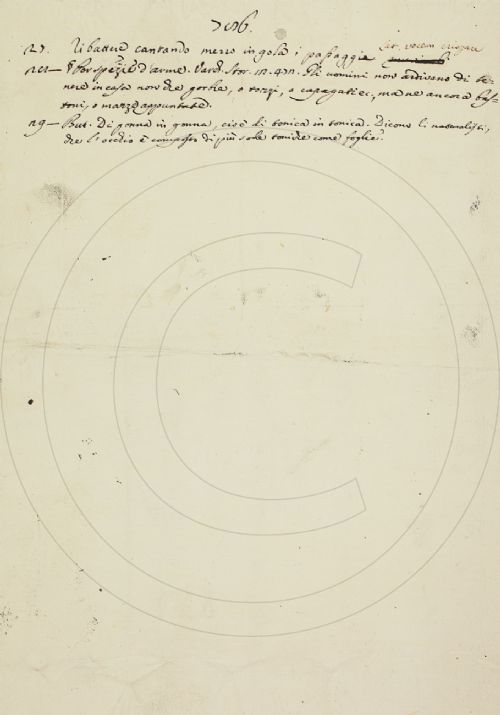 27. Ribattere cantando mezzo in gola i passaggi lat. vocem crispare
Per spezie d'arme. Varc. Stor. Gli uomini non ardivano di te-
nere in casa non che gorbie, o torzi, o ma ne ancora bas-
toni, o mazze appuntate.
29 — But. Di gonna in gonna, cioè di tonica in tonica. Dicono li naturalisti,
che l'occhio è composto di più sode toniche come foglie.